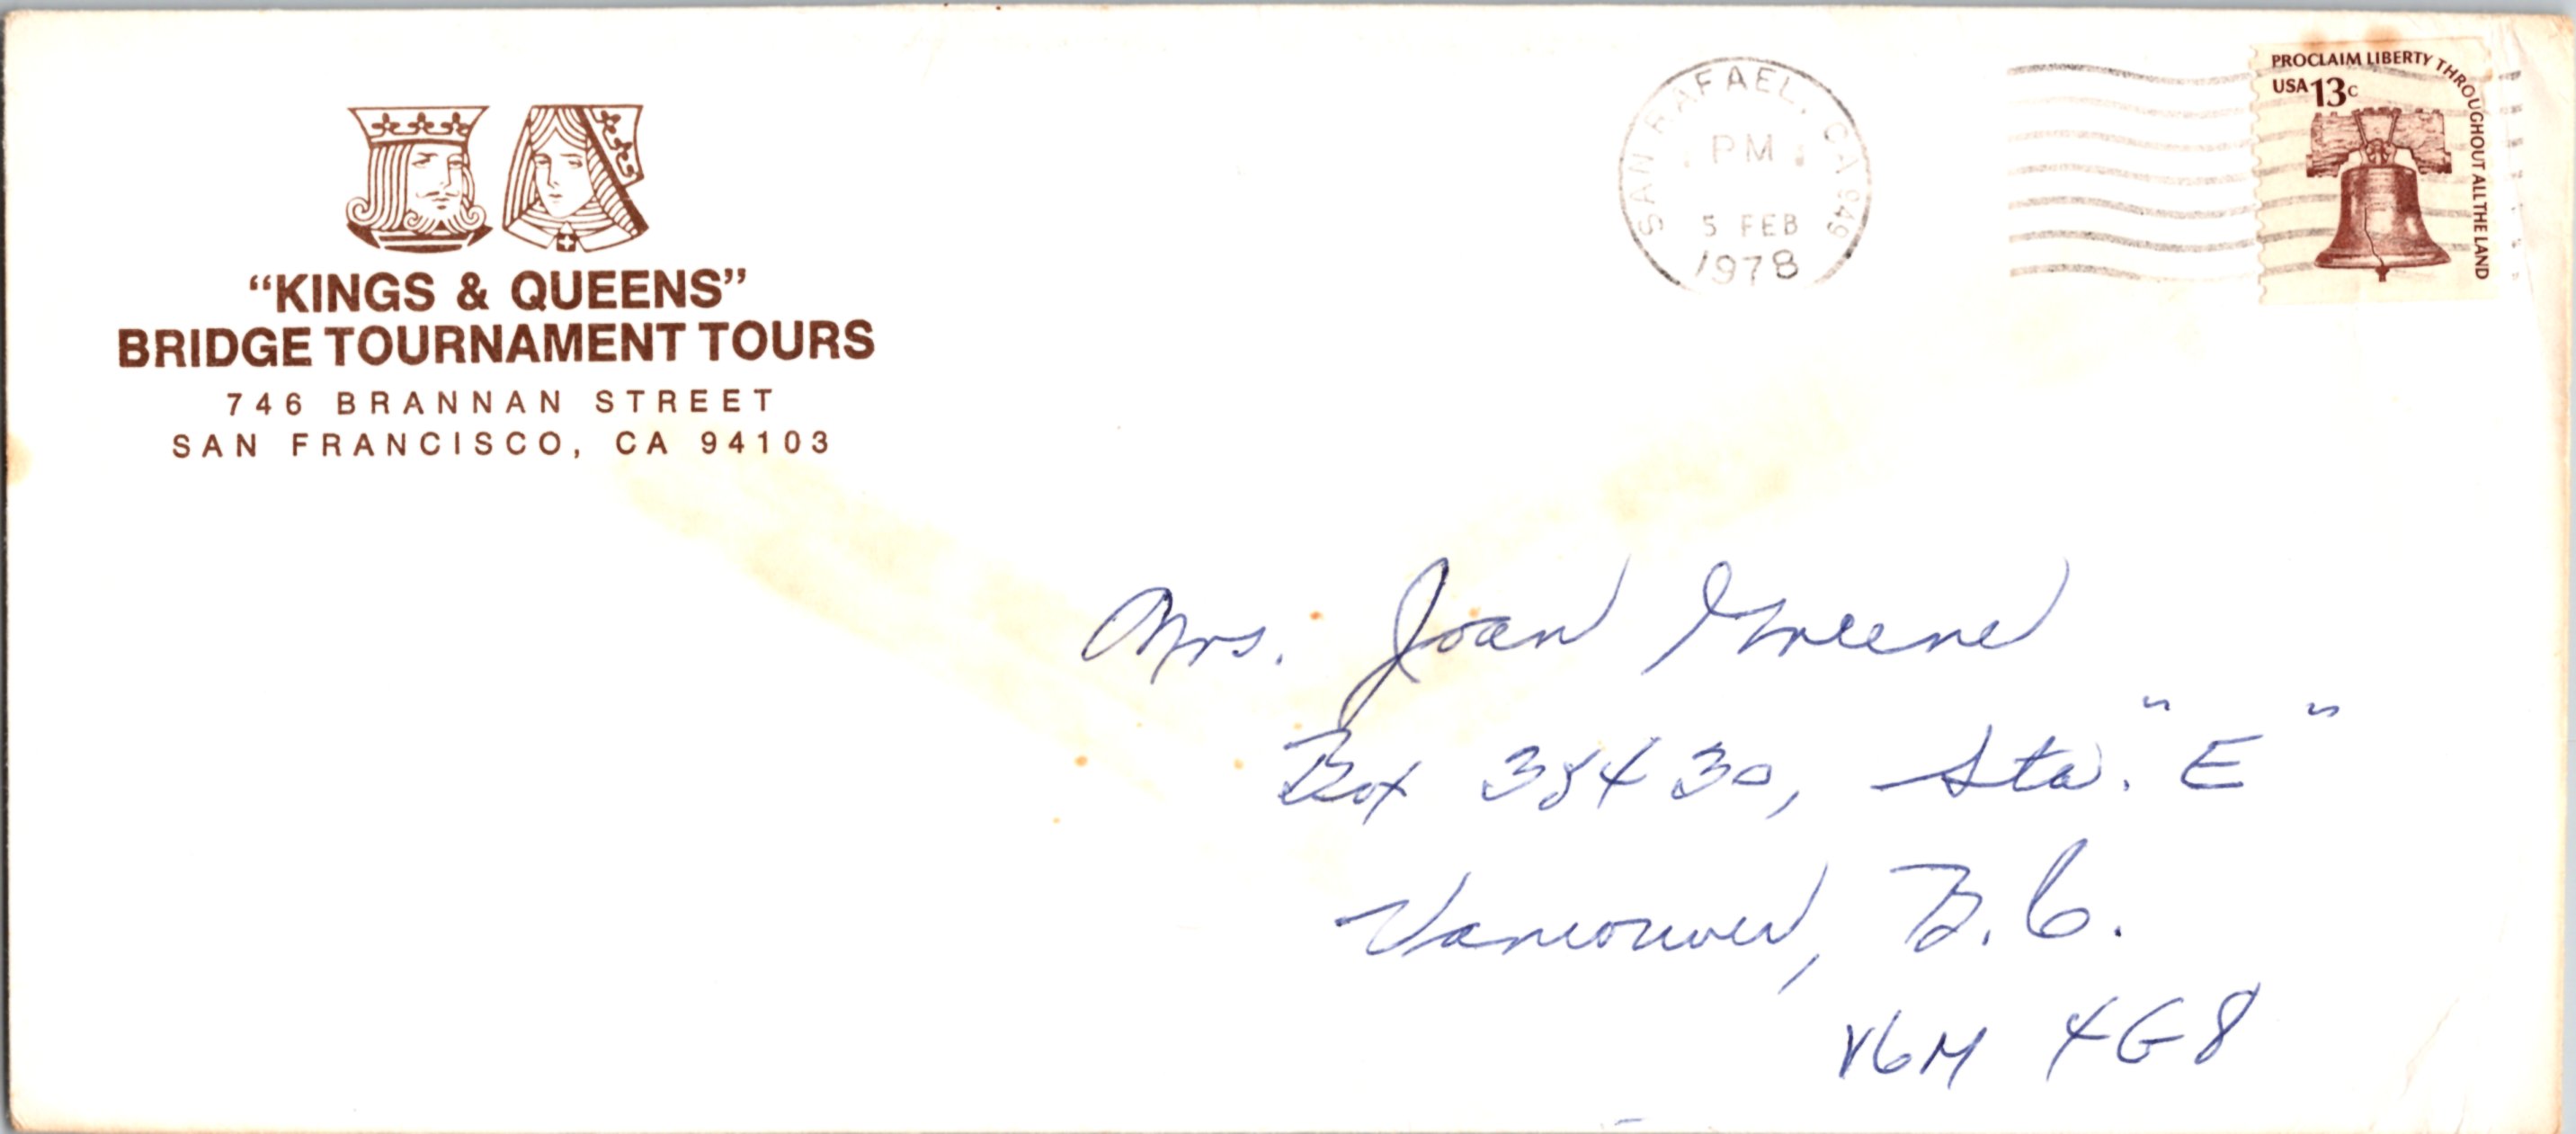 "KINGS & QUEENS"
BRIDGE TOURNAMENT TOURS
746 BRANNAN STREET
SAN FRANCISCO, CA 94103
SAN RAFAEL, CA 949
PM
5 FEB
1978
PROCLAIM LIBERTY THROUGHOUT ALL THE LAND
USA 13c
Mrs. Joan Greene
Box 38430, Sta. "E"
Vancouver, B.C.
V6M 4G8